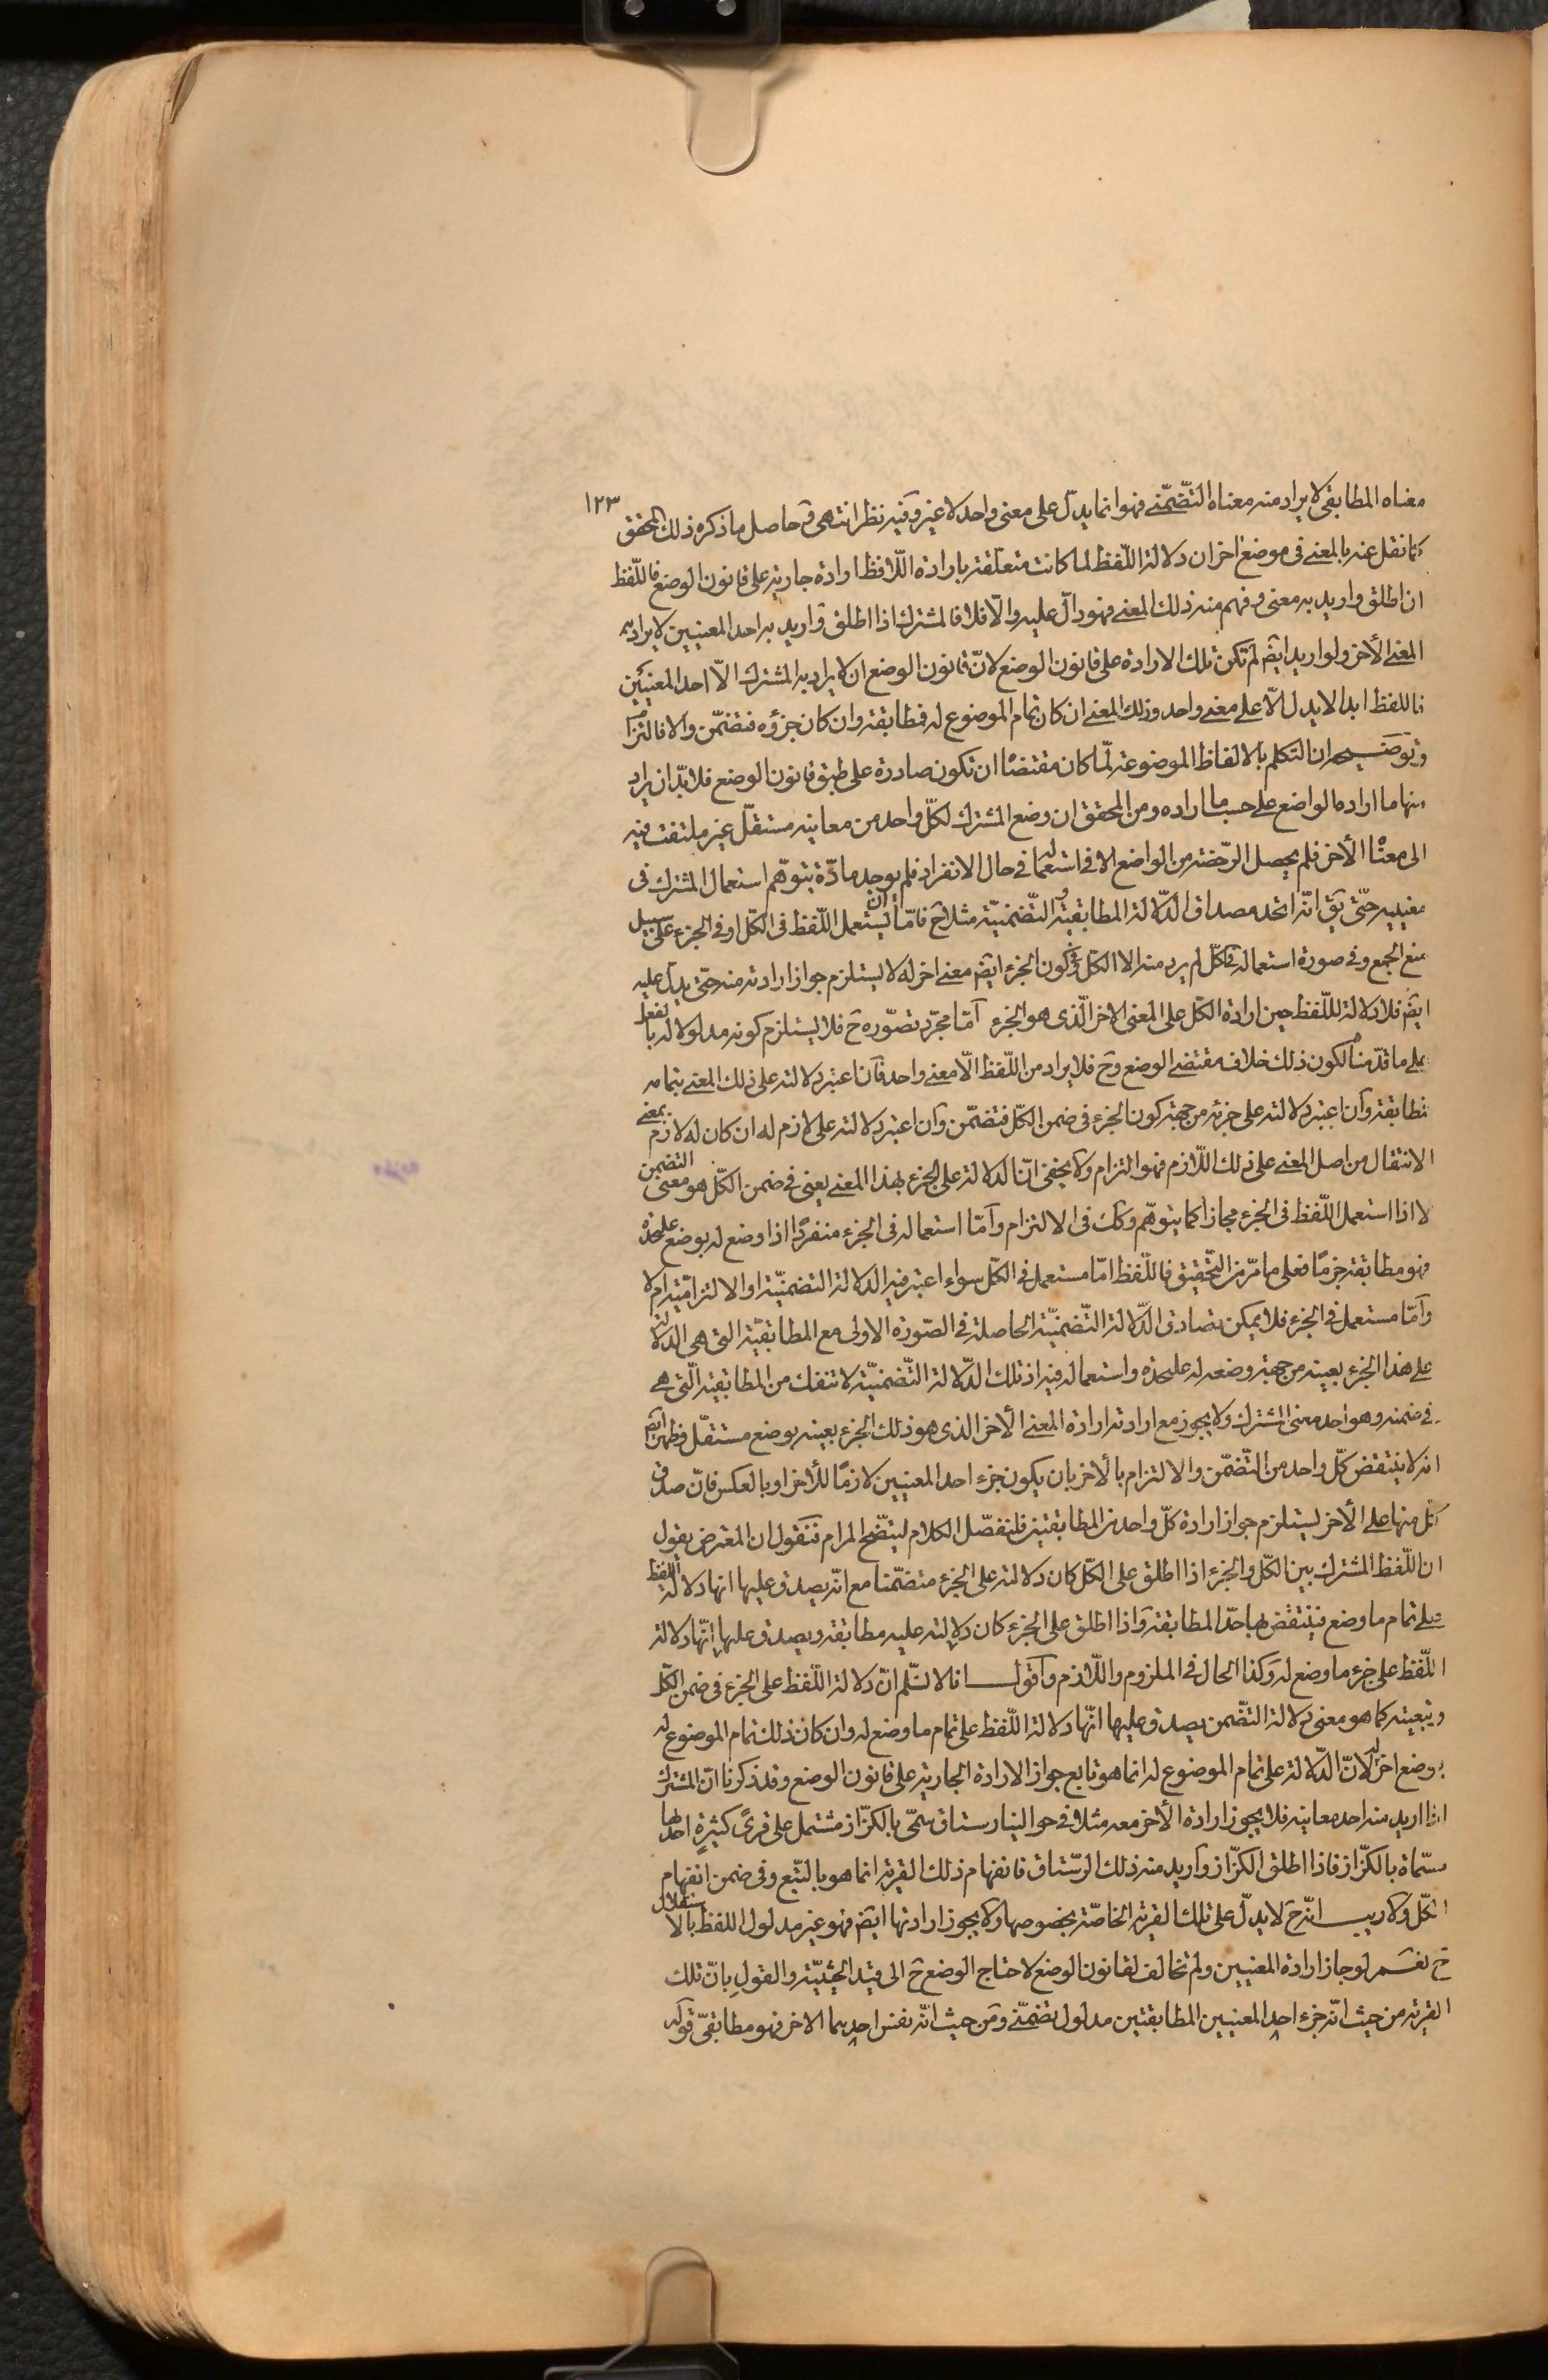 ١٢٣
معناه المطابقى لا يراد منه معناه التّضمّنے فهو انما يدلّ على معنى واحد لا غير وفيه نظر انتهى وحاصل ما ذكره ذلك المحقق
كما نقل عنه بالمعنے فى موضع اخر ان دلالة اللّفظ لما كانت متعلّقة بارادة اللّافظ ارادة جارية على قانون الوضع فاللّفظ
ان اطلق واريد به معنى وفهم منه ذلك المعنے فهو دالّ عليه والّا فلا فالمشترك اذا اطلق واريد به احد المعنيين لا يراد به
المعنے الأخر ولو اريد ايضۤ لم تكن تلك الارادة على قانون الوضع لانّ قانون الوضع ان لا يراد به المشترك الّا احد المعنيين
فاللفظ ابدا لا يدل الّا علے معنے واحد وذلك المعنے ان كان تمام الموضوع له فمطابقة وان كان جزؤه فتضمّن والا فالتزام
وتوضيحه ان التكلم بالالفاظ الموضوعة لمّا كان مقتضًا ان تكون صادرة على طبق قانون الوضع فلا بدّ ان يراد
منها ما اراده الواضع علے حسب ما اراده ومن المحقق ان وضع المشترك لكلّ واحد من معانيه مستقلّ غير ملتفت فيه
الى معناه الأخر فلم يحصل الرّخصة من الواضع الا فى استعماله فى حال الانفراد فلم يوجد مادّة يتوهّم استعمال المشترك فى
معنييه حتّى يقۤ انّه اتحد مصداق الدّلالة المطابقية والتّضمنيّة مثلا حۤ فامّا ان يستعمل اللّفظ فى الكلّ او فى الجزء على سبيل
منع الجمع وفى صورة استعماله فى الكلّ لم يرد منه الا الكلّ فح كون الجزء ايضۤ معنے اخر له لا يستلزم جواز ارادته منه حتّى يدلّ عليه
ايضۤ فلا دلالة للّفظ حين ارادة الكل على المعنى الاخر الّذى هو الجزء امّا مجرّد تصوّره حۤ فلا يستلزم كونه مدلولا له بالفعل
على ما قدّمنا لكون ذلك خلاف مقتضے الوضع وحۤ فلا يراد من اللّفظ الّا معنے واحد فان اعتبر دلالته على ذلك المعنے بتمامه
فطابقة وان اعتبر دلالته على جزئه من جهة كون الجزء فى ضمن الكلّ فتضمّن وان اعتبر دلالته على لازم له ان كان له لازم بمعنے
الانتقال من اصل المعنے على ذلك اللّازم فهو التزام ولا يخفى انّ الدلالة على الجزء بهذا المعنے يعنى فى ضمن الكلّ هو معنى التضمن
لا اذا استعمل اللّفظ فى الجزء مجازا كما يتوهّم وكك فى الالتزام وامّا استعماله فى الجزء منفردًا اذا وضع له بوضع عليحدة
فهو مطابقة جزمًا فعلى ما مرّ من التّحقيق فاللّفظ امّا مستعمل فى الكلّ سواء اعتبر فيه الدلالة التضمنيّة او الالتزاميّة ام لا
وامّا مستعمل فى الجزء فلا يمكن تصادق الدّلالة التّضمنيّة الحاصلة فى الصّورة الاولى مع المطابقيّة التى هى الدلالة
على هذا الجزء بعينه من جهة وضعه له عليحدة واستعماله فيه اذ تلك الدّلالة التّضمنيّة لا تنفك من المطابقية الّتى هے
فى ضمنه وهو احد معنى المشترك ولا يجوز مع ارادته ارادة المعنے الأخر الذى هو ذلك الجزء بعينه بوضع مستقلّ وظهر ايضۤ
انه لا ينتقض كلّ واحد من التّضمّن والالتزام بالأخر بان يكون جزء احد المعنيين لازمًا للأخر او بالعكس فانّ صدق
كل منها على الأخر يستلزم جواز ارادة كلّ واحد من المطابقتين فلنفصّل الكلام ليتّضح المرام فنقول ان المعترض يقول
ان اللّفظ المشترك بين الكلّ والجزء اذا اطلق على الكلّ كان دلالته على الجزء متضمّنا مع انّه يصدق عليها انها دلالة اللّفظ
على تمام ما وضع فينتقض بها حدّ المطابقة واذا اطلق على الجزء كان دلالته عليه مطابقة ويصدق عليها انّها دلالة
اللّفظ على جزء ما وضع له وكذا الحال فى الملزوم واللّازم واقول انا لا نسّلم انّ دلالة اللّفظ على الجزء فى ضمن الكلّ
وتبعيته كما هو معنى دلالة التضّمن يصدق عليها انّها دلالة اللّفظ على تمام ما وضع له وان كان ذلك تمام الموضوع له
بوضع اخر لانّ الدّلالة على تمام الموضوع له انما هو تابع جواز الارادة الجارية على قانون الوضع وقد ذكرنا انّ المشترك
اذا اريد منه احد معانيه فلا يجوز ارادة الأخر معه مثلا فى حوالينا رستاق سمّى بالكزّاز مشتمل على قرىً كثيرةٍ احدها
مسمّاة بالكزّاز فاذا اطلق الكزّاز واريد منه ذلك الرّستاق فانفهام ذلك القرية انما هو بالتّبع وفى ضمن انفهام
الكلّ ولا ريب انّه حۤ لا يدلّ على تلك القرية الخاصّة بخصوصها ولا يجوز ارادتها ايضۤ فهو غير مدلول اللفظ بالاستقلال
حۤ نعم لو جاز ارادة المعنيين ولم تخالف لقانون الوضع لاحتاج الوضع حۤ الى قيد الحيثيّة والقول بانّ تلك
القرية من حيث انّه جزء احد المعنيين المطابقتين مدلول تضمّنے ومن حيث انّه نفس احدهما الاخر فهو مطابقىّ قوله